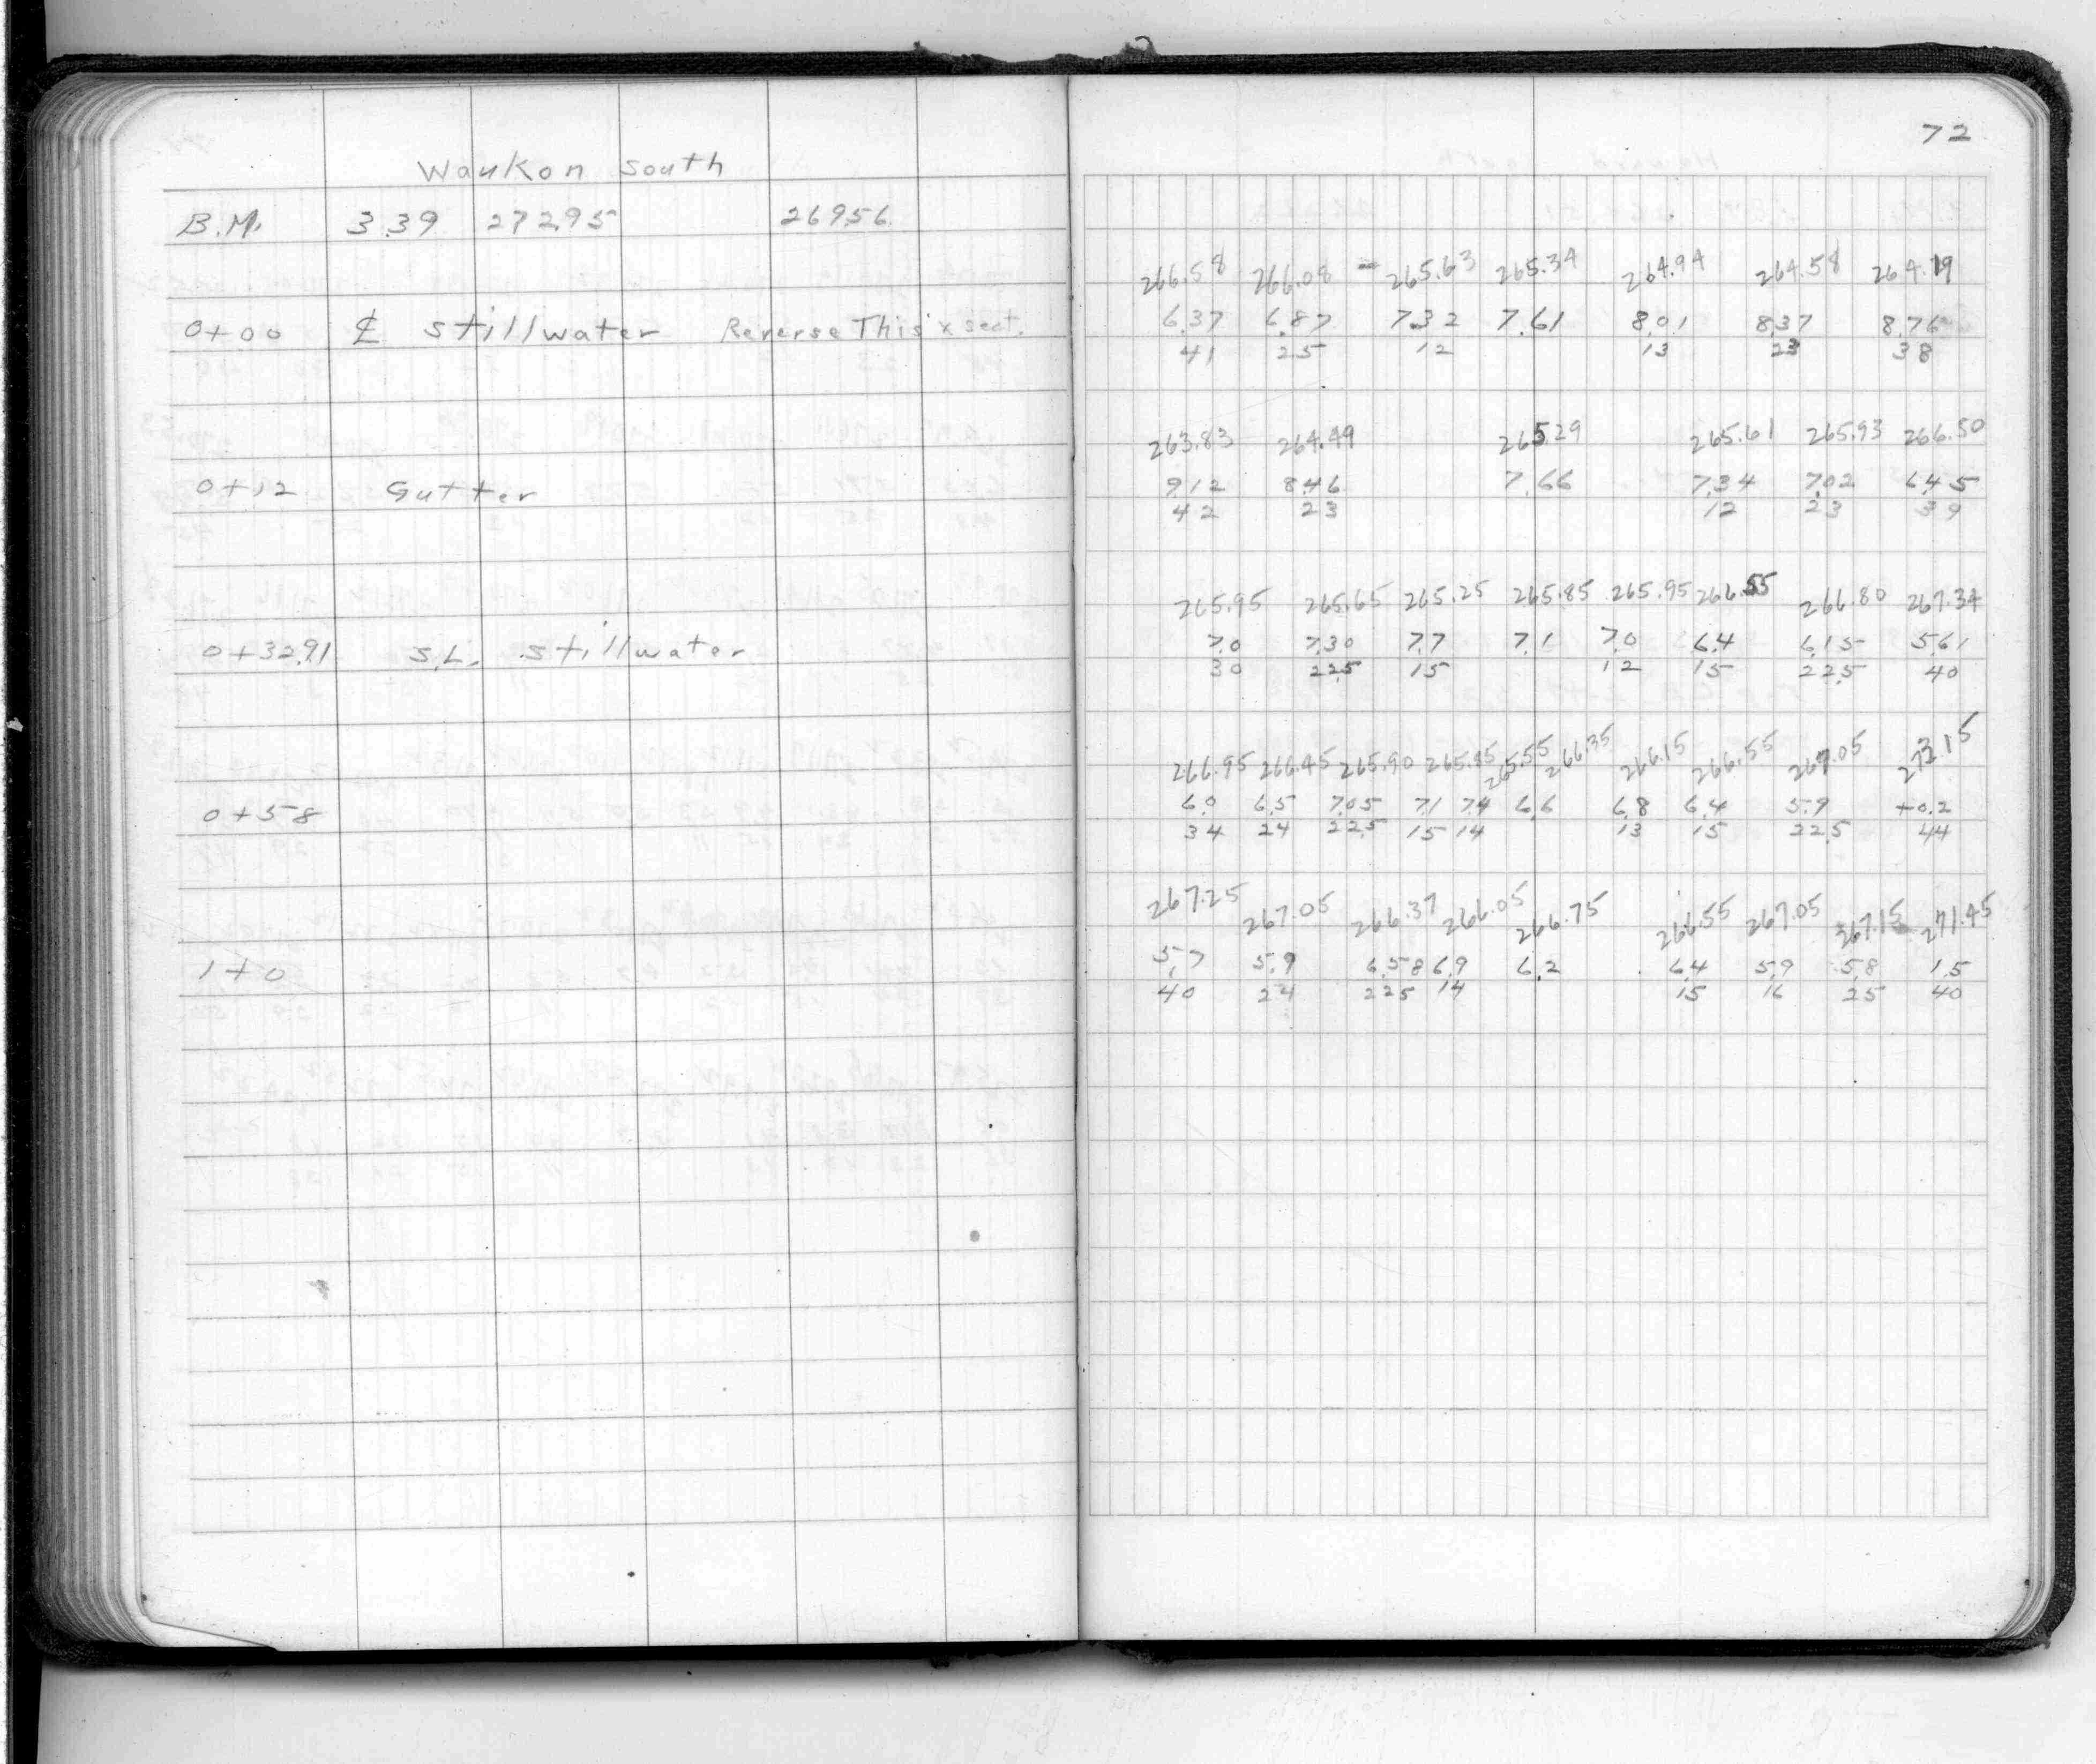 Waukon South
B.M. 3.39 272.95 269.56
0+00 ℄ Stillwater Reverse This x sect.
0+12 Gutter
0+32.91 S.L. Stillwater
0+58
1+0
72
266.58 266.08 - 265.63 265.34 264.94 264.58 264.19
6.37 6.87 7.32 7.61 8.01 8.37 8.76
41 25 12 13 23 38
263.83 264.49 265.29 265.61 265.93 266.50
9.12 8.46 7.66 7.34 7.02 6.45
42 23 12 23 39
265.95 265.65 265.25 265.85 265.95 266.55 266.80 267.34
7.0 7.30 7.7 7.1 7.0 6.4 6.15 5.61
30 22.5 15 12 15 22.5 40
266.95 266.45 265.90 265.85 265.55 266.35 266.15 266.55 267.05 273.15
6.0 6.5 7.05 7.1 7.4 6.6 6.8 6.4 5.9 +0.2
34 24 22.5 15 14 13 15 22.5 44
267.25 267.05 266.37 266.05 266.75 266.55 267.05 267.15 271.45
5.7 5.9 6.58 6.9 6.2 6.4 5.9 5.8 1.5
40 24 22.5 14 15 16 25 40